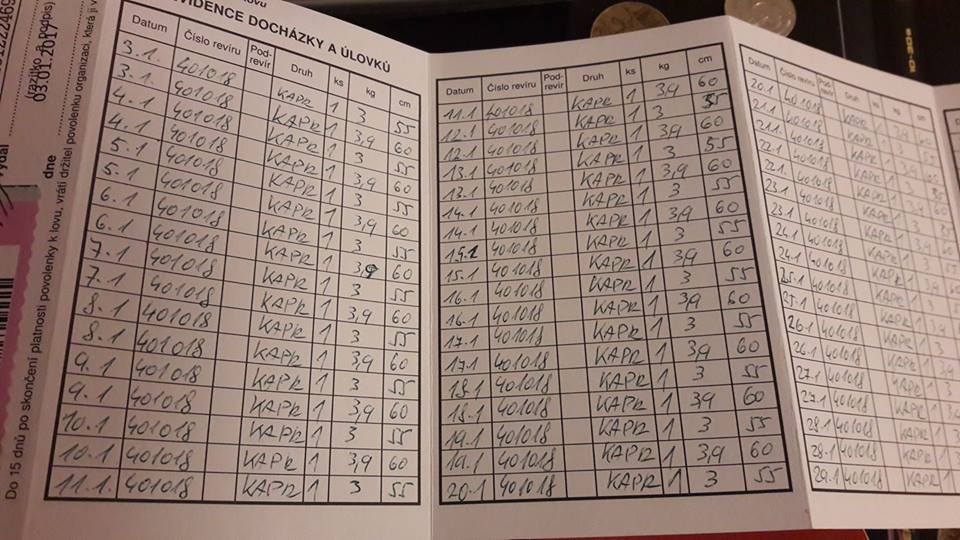 VIDENCE DOCHÁZKY A ÚLOVKŮ
Datum Číslo revíru Pod-revír Druh ks kg cm
3.1. 401018 KAPR 1 3 55
3.1. 401018 KAPR 1 3,9 60
4.1 401018 KAPR 1 3 55
4.1 401018 KAPR 1 3,9 60
5.1 401018 KAPR 1 3 55
5.1 401018 KAPR 1 3,9 60
6.1 401018 KAPR 1 3 55
6.1 401018 KAPR 1 3,9 60
7.1 401018 KAPR 1 3 55
7.1 401018 KAPR 1 3,9 60
8.1 401018 KAPR 1 3 55
8.1 401018 KAPR 1 3,9 60
9.1 401018 KAPR 1 3 55
9.1 401018 KAPR 1 3,9 60
10.1 401018 KAPR 1 3 55
10.1 401018 KAPR 1 3,9 60
11.1. 401018 KAPR 1 3 55
Datum Číslo revíru Pod-revír Druh ks kg cm
11.1 401018 KAPR 1 3,9 60
12.1 401018 KAPR 1 3 55
12.1 401018 KAPR 1 3,9 60
13.1 401018 KAPR 1 3 55
13.1 401018 KAPR 1 3,9 60
14.1 401018 KAPR 1 3 55
14.1 401018 KAPR 1 3,9 60
15.1 401018 KAPR 1 3 55
15.1 401018 KAPR 1 3,9 60
16.1 401018 KAPR 1 3 55
16.1 401018 KAPR 1 3,9 60
17.1 401018 KAPR 1 3 55
17.1 401018 KAPR 1 3,9 60
18.1 401018 KAPR 1 3 55
18.1 401018 KAPR 1 3,9 60
19.1 401018 KAPR 1 3 55
19.1 401018 KAPR 1 3,9 60
20.1 401018 KAPR 1 3 55
Datum Číslo revíru Pod-revír Druh ks kg
20.1 401018 KAPR
21.1 401018 KAPR
21.1. 401018 KAPR
22.1 401018 KAPR
22.1. 401018 KAPR
23.1 401018 KAPR
23.1 401018 KAPR
24.1 401018 KAPR
24.1 401018 KAPR
25.1 401018 KAPR
25.1 401018 KAPR
26.1 401018 KAPR
26.1 401018 KAPR
27.1 401018 KAPR
27.1 401018 KAPR
28.1 401018 KAPR
28.1 401018 KAPR
29.1 401018 KAPR
Do 15 dnů po skončení platnosti povolenky k lovu, vrátí držitel povolenku organizaci, která ji v
dne
03.01.2017
(razítko a podpis)